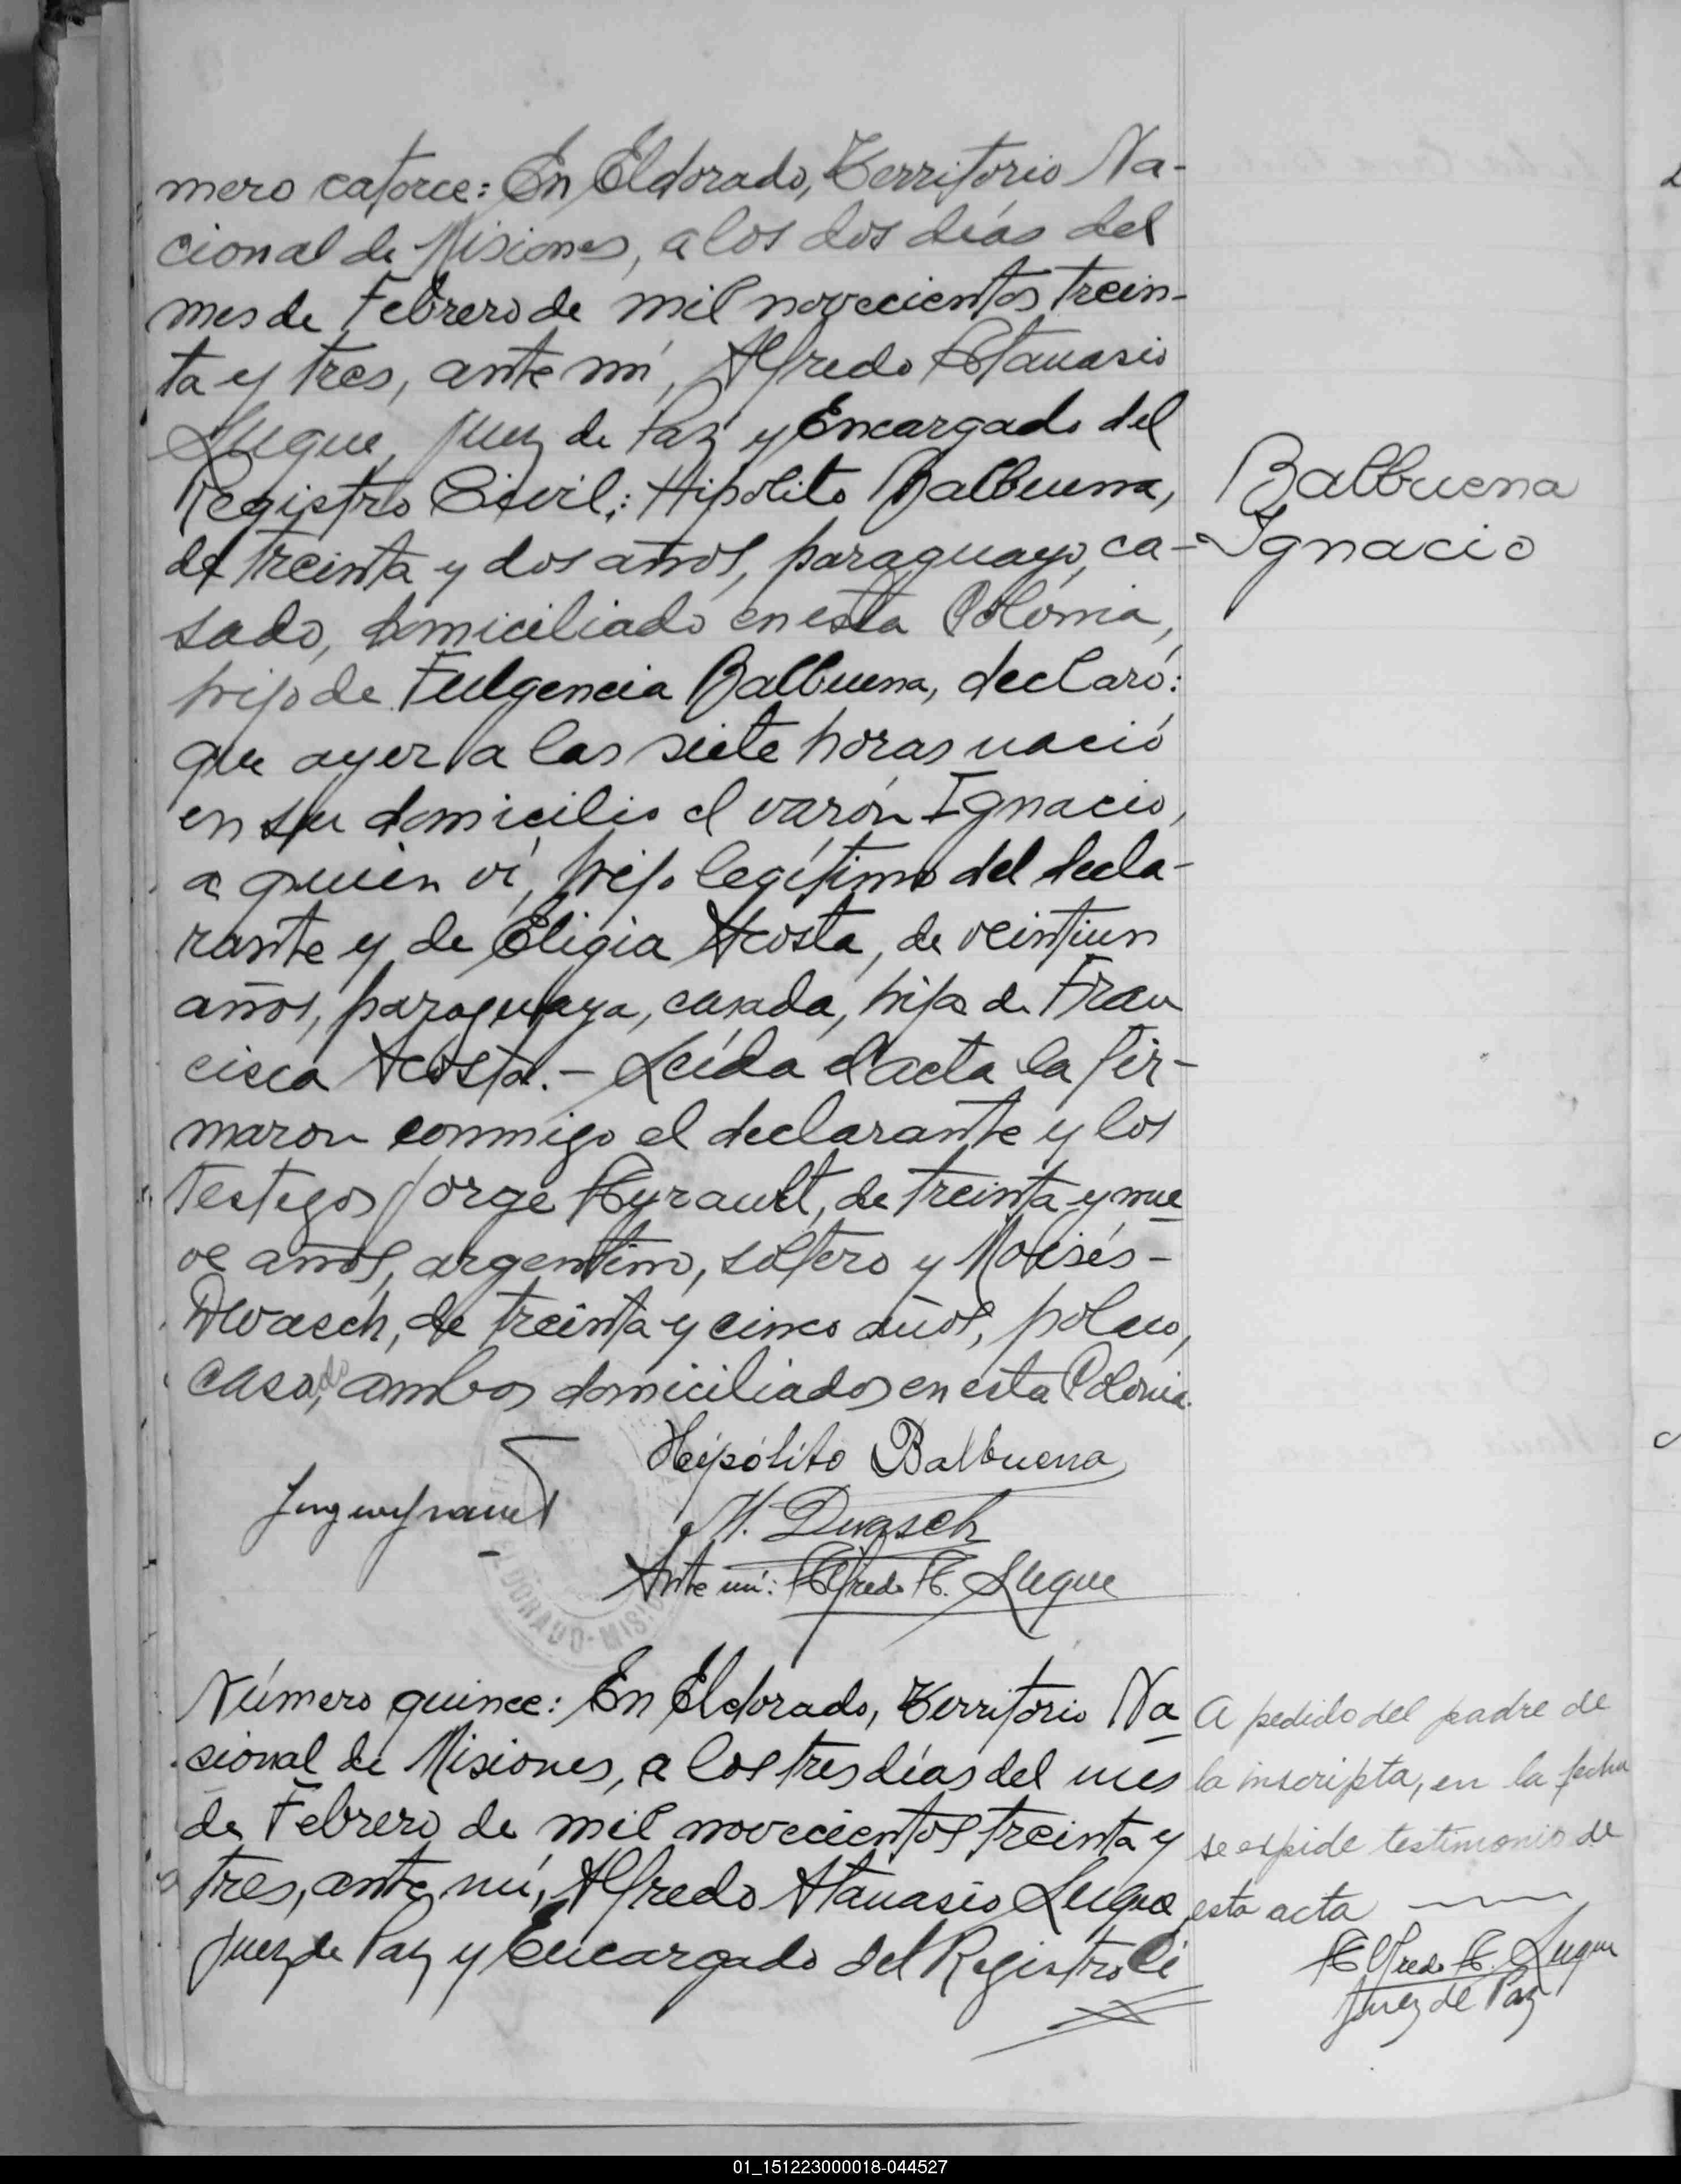 mero catorce: En Eldorado, Territorio Na-
cional de Misiones, a los dos días del
mes de Febrero de mil novecientos trein-
ta y tres, ante mí, Alfredo Atanasio
Luque, Juez de Paz y Encargado del
Registro Civil: Hipolito Balbuena,
de treinta y dos años, paraguayo, ca-
sado, domiciliado en esta Colonia,
hijo de Fulgencia Balbuena, declaró:
que ayer a las siete horas nació
en su domicilio el varón Ignacio,
a quien ví, hijo legítimo del decla-
rante y de Eligia Acosta, de veintiun
años, paraguaya, casada, hija de Fran
cisca Acosta.- Leída el acta la fir-
maron conmigo el declarante y los
testigos Jorge Ayrault, de treinta y nue
ve años, argentino, soltero y Moisés-
Dwasch, de treinta y cinco años, polaco,
casado, ambos domiciliados en esta Colonia.
Balbuena
Ignacio
Hipólito Balbuena
M. Dwasch
Ante mí: Alfredo A. Luque
ELDORADO-MISIONES
Número quince: En Eldorado, Territorio Na
cional de Misiones, a los tres días del mes
de Febrero de mil novecientos treinta y
tres, ante mí, Alfredo Atanasio Luque
Juez de Paz y Encargado del Registro Ci
A pedido del padre de
la inscripta, en la fecha
se expide testimonio de
esta acta
Alfredo A. Luque
Juez de Paz
01_151223000018-044527